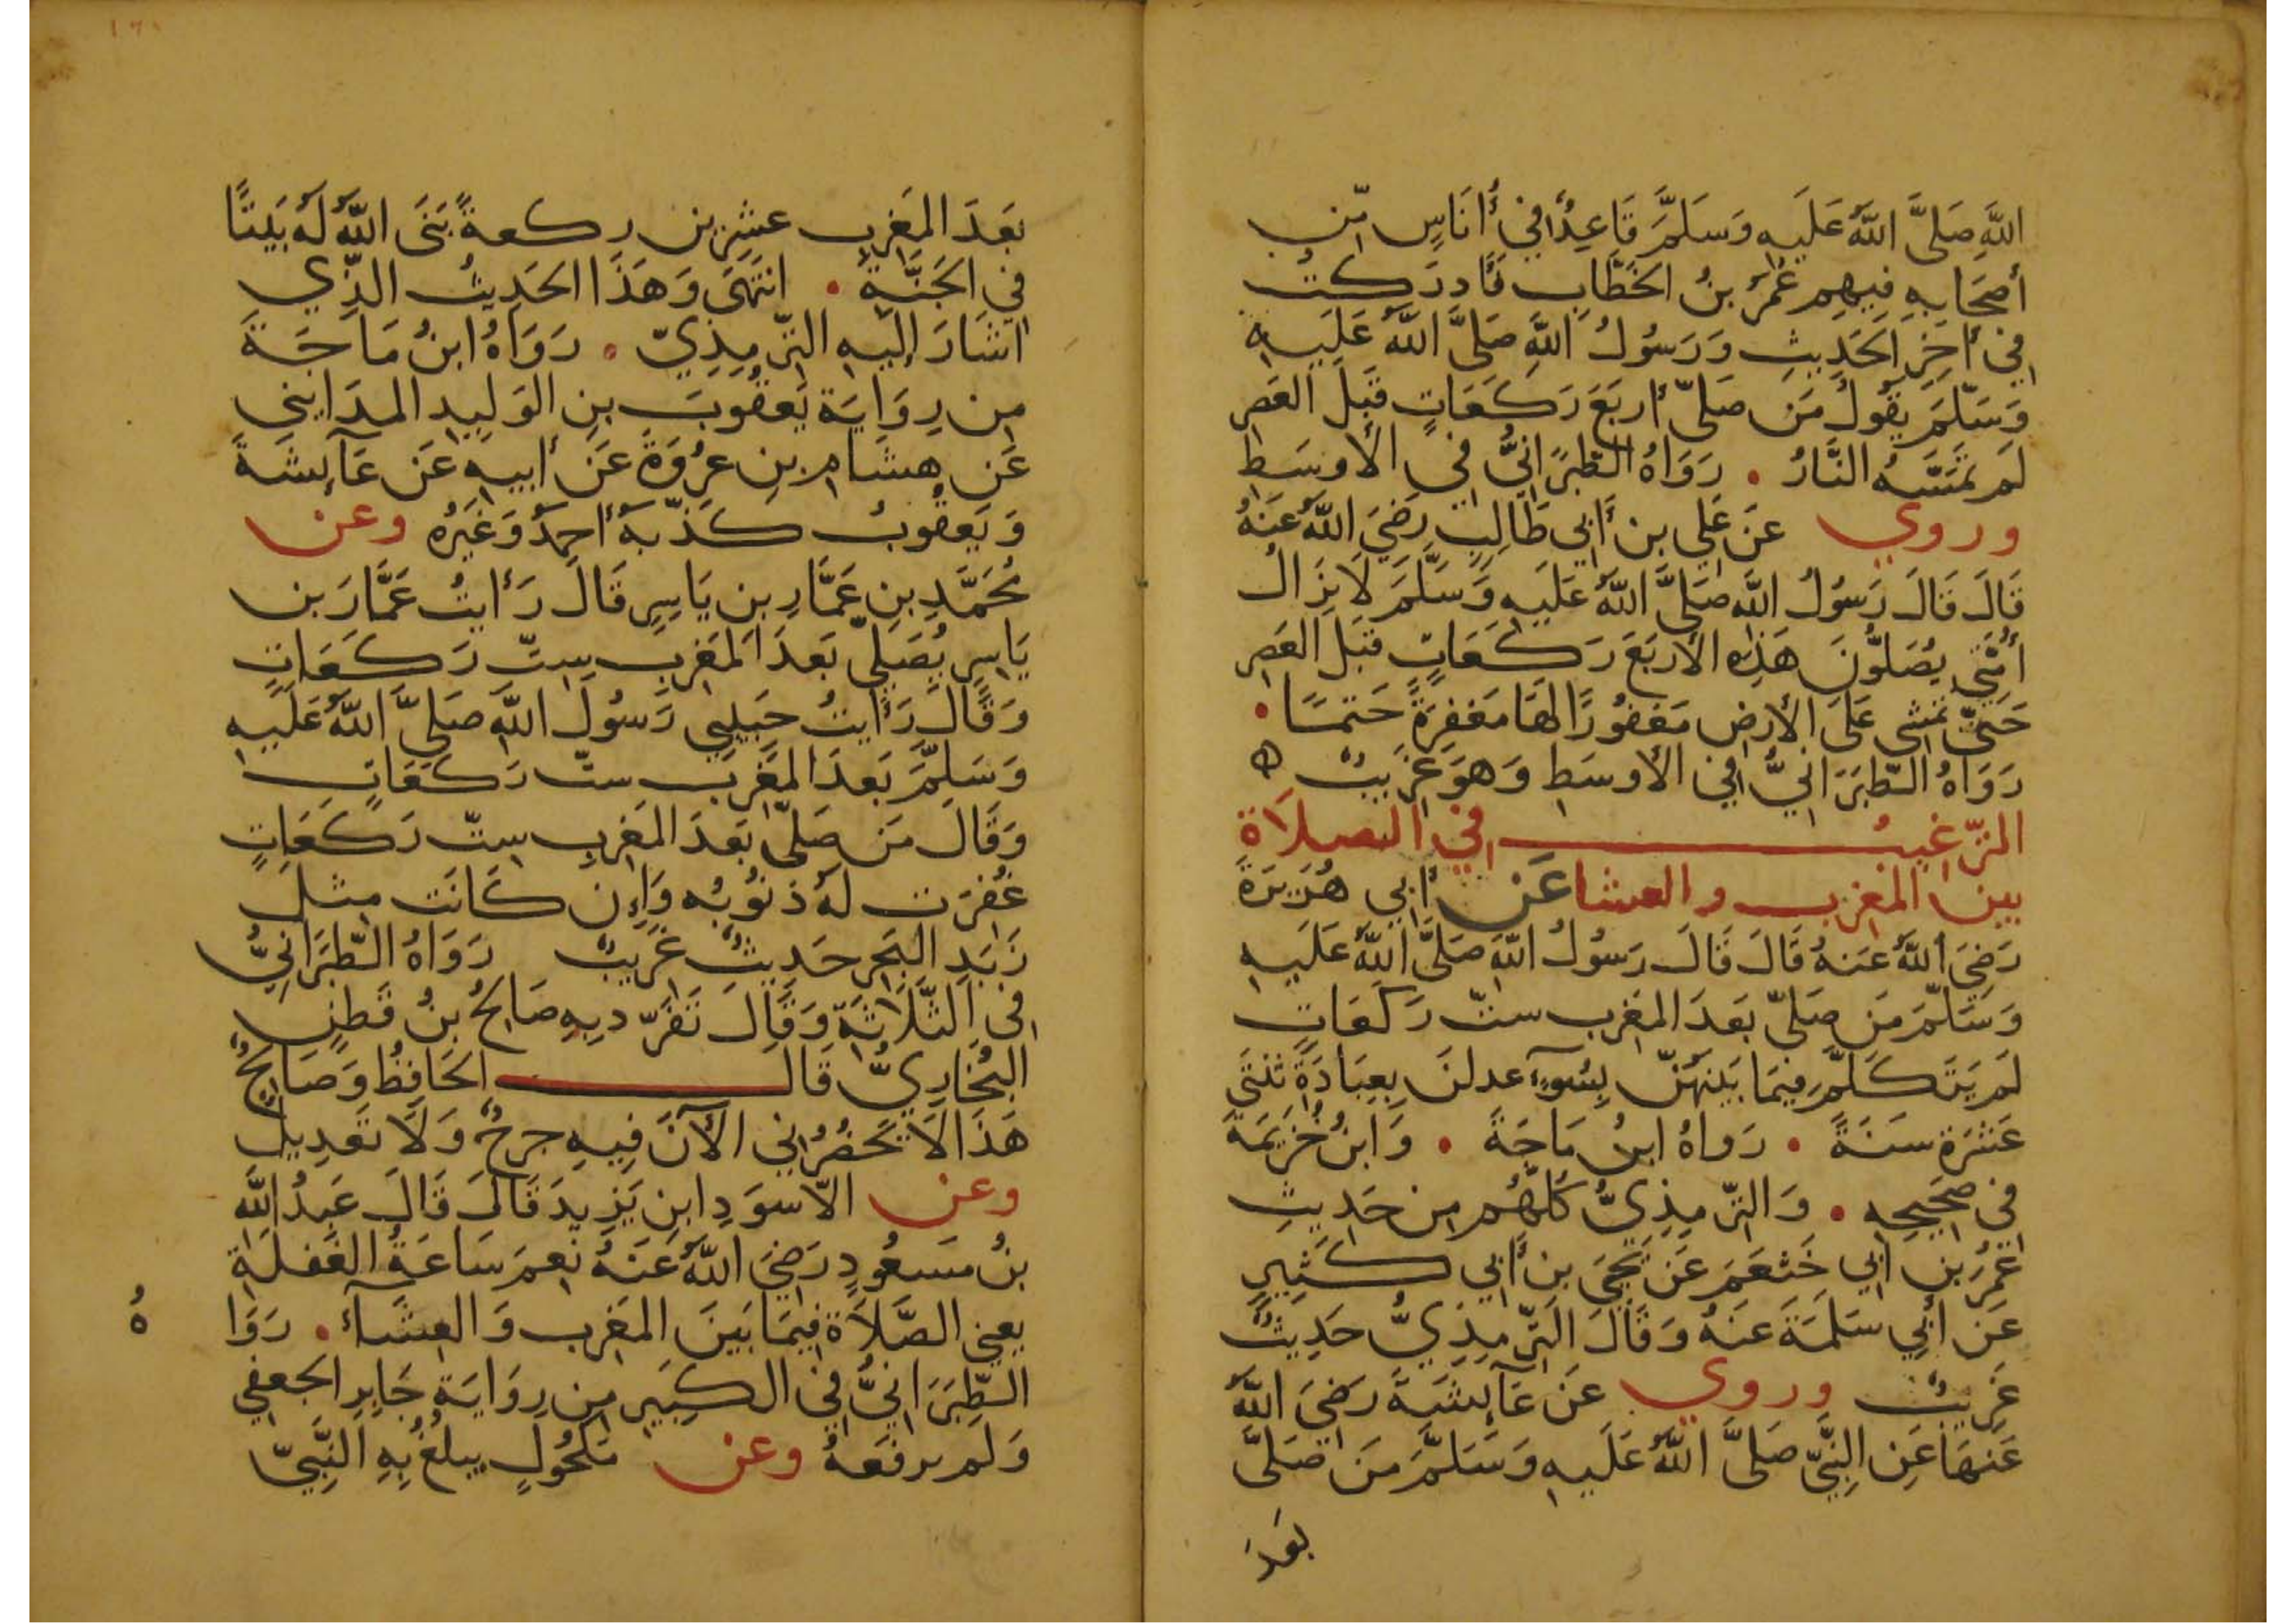 اللَّهِ صَلَّى اللَّهُ عَلَيهِ وَسَلَّمَ قَاعِدٌ افي أُنَاسٍ مِّن
أصحَابِهِ فِيهِم عُمَرُ بنُ الخَطَّابِ فَأدرَكتُ
في أخِرِ الحَدِيثِ وَرَسُولُ اللَّهِ صَلَّى اللَّهُ عَلَيهِ
وَسَلَّمَ يَقُولُ مَن صَلَّى أربَعَ رَكَعَاتٍ قَبلَ العَصرِ
لَم تَمَسَّهُ النَّارُ • رَوَاهُ الطَّبَرَانِيُّ في الأوسَطِ
وروي عَن عَلي بن أَبي طَالِبٍ رَضيَ اللَّهُ عَنهُ
قَالَ قَالَ رَسُولُ اللَّه صَلَّى اللَّهُ عَلَيهِ وَسَلَّمَ لَا يَزَالُ
أُمَّتِي يُصَلُّونَ هَذِهِ الأَربَعَ رَكَعَاتٍ قَبلَ العَصرِ
حَتَّى تمشي عَلَى الأَرضِ مَغفُورًا لهَا مَغفِرَةً حَتمًا •
رَوَاهُ الطَّبَرَانيُّ في الأوسَطِ وَهوَ غَرِيبٌ ه
التَّرغيبُ في الصلاة
بين المغرب والعشا عَن أبي هُرَيرَةَ
رَضيَ اللَّهُ عَنهُ قَالَ قَالَ رَسُولُ اللَّه صَلَّى اللَّهُ عَلَيهِ
وَسَلَّمَ مَن صَلَّى بَعدَ المَغرِب ستّ رَكَعَاتٍ
لَم يَتَكَلَّم فيمَا بَينَهُنّ بِسُوءٍ عدلنَ بِعِبَادَةِ ثنتَى
عَشَرَة سَنَةً • رَوَاهُ ابنُ مَاجَةَ • وَابنُ خُزَيمَةَ
في صَحِيحِهِ • وَالتِّرمِذِيُّ كُلُّهُم مِن حَدِيثِ
عُمَرَ بن ابي خَثعَمَ عَن يَحيَى بنِ أَبي كَثِيرٍ
عَن أَبي سَلَمَةَ عَنهُ وَقَالَ التِّرمِذِيُّ حَدِيثٌ
غَرِيبٌ وروي عَن عَآئِشَةَ رَضيَ اللَّهُ
عَنهَا عَنِ النَّبِيّ صَلَّى اللَّهُ عَلَيهِ وَسَلَّمَ مَن صَلَّى
بَعدَ
بَعَدَ المَغرِبِ عشِرين ركعةً بَنَى اللَّهُ لَهُ بَيتًا
في الجَنَّةِ • انتَهَى وَهَذَا الحَدِيثُ الَّذِي
اشَارَ إلَيهِ التِّرمِذِيّ • رَوَاهُ ابنُ مَاجَةَ
مِن رِوَايَة يَعقُوبَ بنِ الوَلِيدِ المدَايِني
عَن هِشَامِ بنِ عُروَةَ عَن أَبيهِ عَن عَآئِشَةَ
وَيَعقُوبُ كَذّبَهُ أحمَدُ وَغَيرُه وعن
مُحَمَّدِ بنِ عَمَّارِ بن يَاسِرٍ قَالَ رَأَيتُ عَمَّارَ بن
يَاسِرٍ يُصَلِّي بَعدَ المَغرِبِ سِتّ رَكَعَاتٍ
وَقَالَ رَأَيتُ حَبِيبِي رَسُولَ اللَّهِ صَلَّى اللَّهُ عَلَيهِ
وَسَلَّمَ بَعدَ المَغرِبِ ستّ رَكَعَاتٍ
وَقَالَ مَن صَلَّى بَعَدَ المَغرِبِ سِتّ رَكَعَاتٍ
غُفِرَت لَهُ ذنُوبُه وَإِن كَانَت مِثلَ
زَبَدِ البَحرِ حَدِيثٌ غَرِيبٌ رَوَاهُ الطَّبَرَانِيُّ
في الثَّلَاثَةِ وَقَالَ تَفَرّد بِهِ صَالحُ بنُ قَطنٍ
البُخَارِيُّ قَالَ الحَافِظُ وَصَالِحٌ
هَذَا لَا يَحضُرُني الأنَ فِيهِ جرحٌ وَلَا تَعدِيل
وعن الأسوَدِ ابنِ يَزِيدَ قَالَ قَالَ عَبدُ اللَّهِ
بنُ مَسعُودٍ رَضيَ اللَّهُ عَنهُ نِعمَ سَاعَةُ الغَفلَةِ
يعني الصَّلَاة فِيمَا بَينَ المَغرِبِ وَالعِشَآءِ • رَوَا
هُ
الطَّبَرَانيُّ في الكَبِيرِ مِن رِوَايَةِ جَابِرِ الجعفِي
وَلَم يرفَعهُ وعن مَكحُولٍ يبلُغُ بِهِ النَّبِيّ